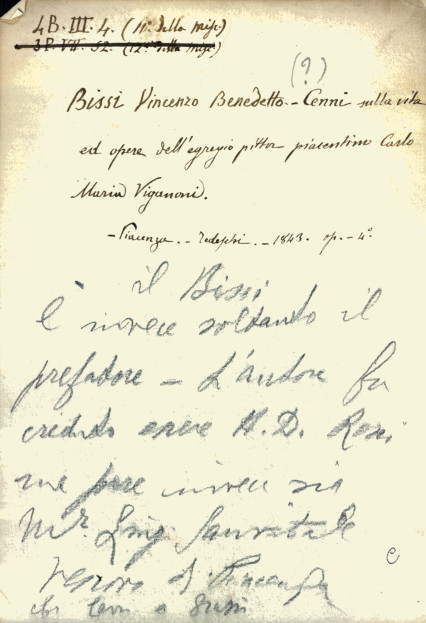 4B. III. 4. (11ª della Misc.)
3P. VII. 52. (12ª della Misc.)
(?)
Bissi Vincenzo Benedetto - Cenni sulla vita
ed opere dell'egregio pittor piacentino Carlo
Maria Viganoni.
- Piacenza. - Tedeschi. - 1843. op. - 4°.
il Bissi
è invece soltanto il
prefatore - L'autore fu
creduto essere A. D. Rossi
ma pare invece sia
Mr. Luigi Sanvitale
Vescovo di Piacenza